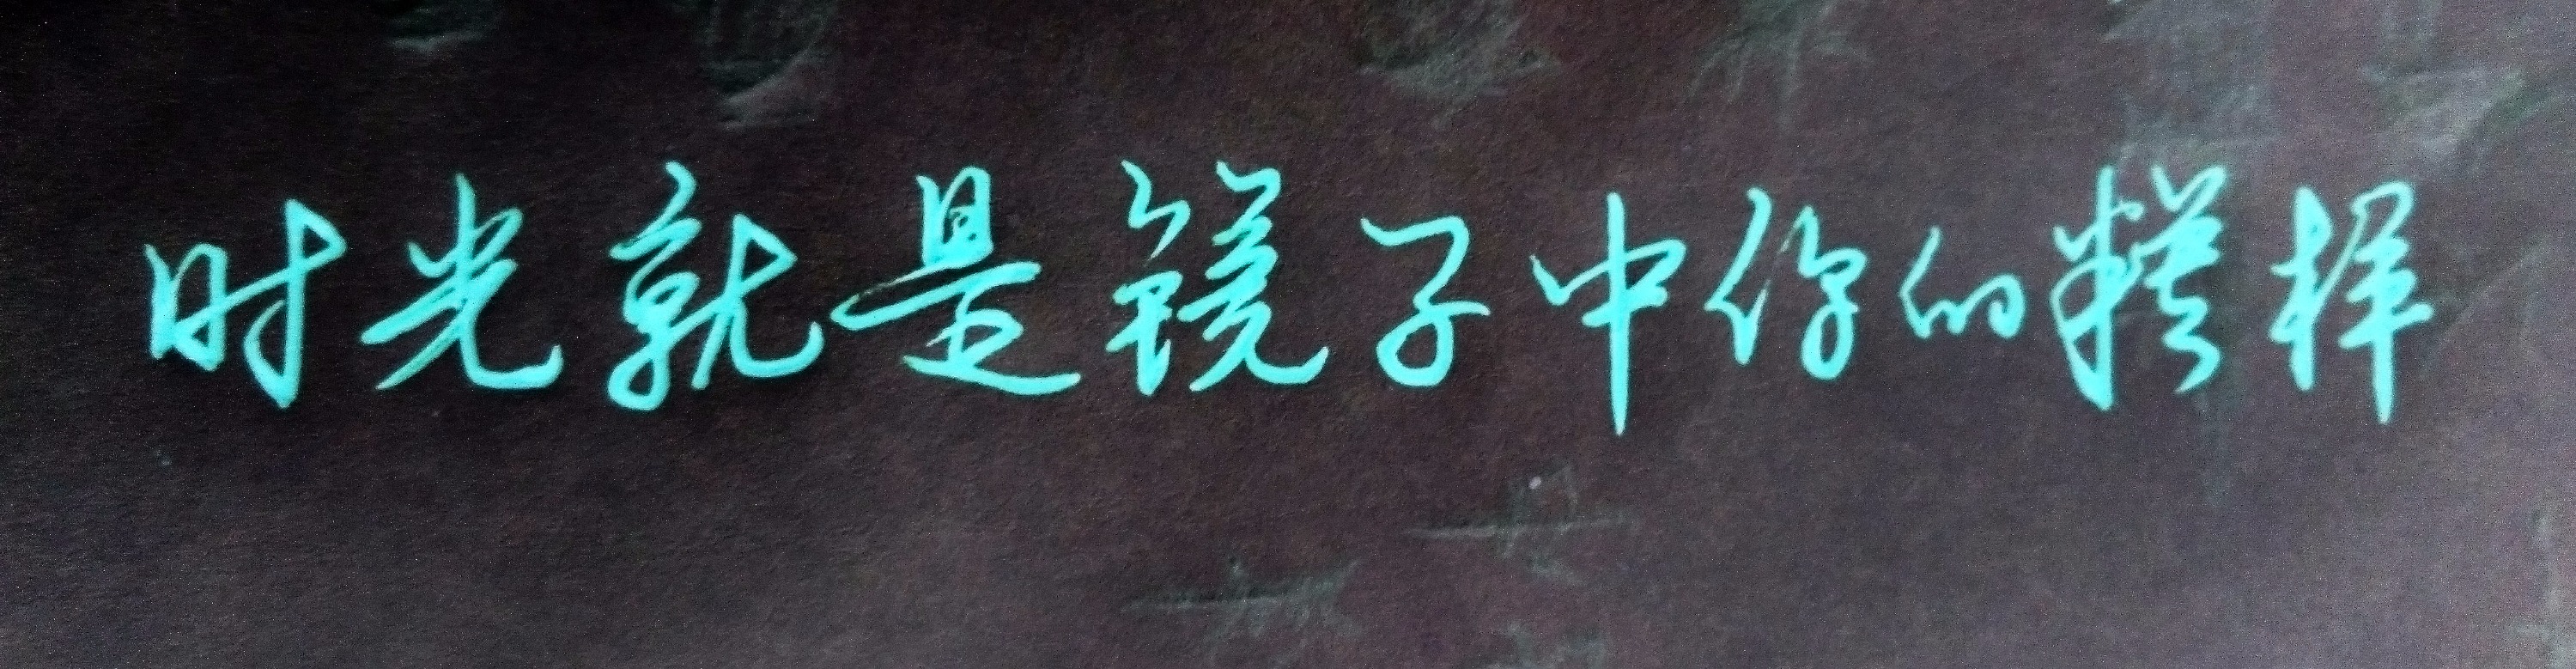 时光就是镜子中你的模样